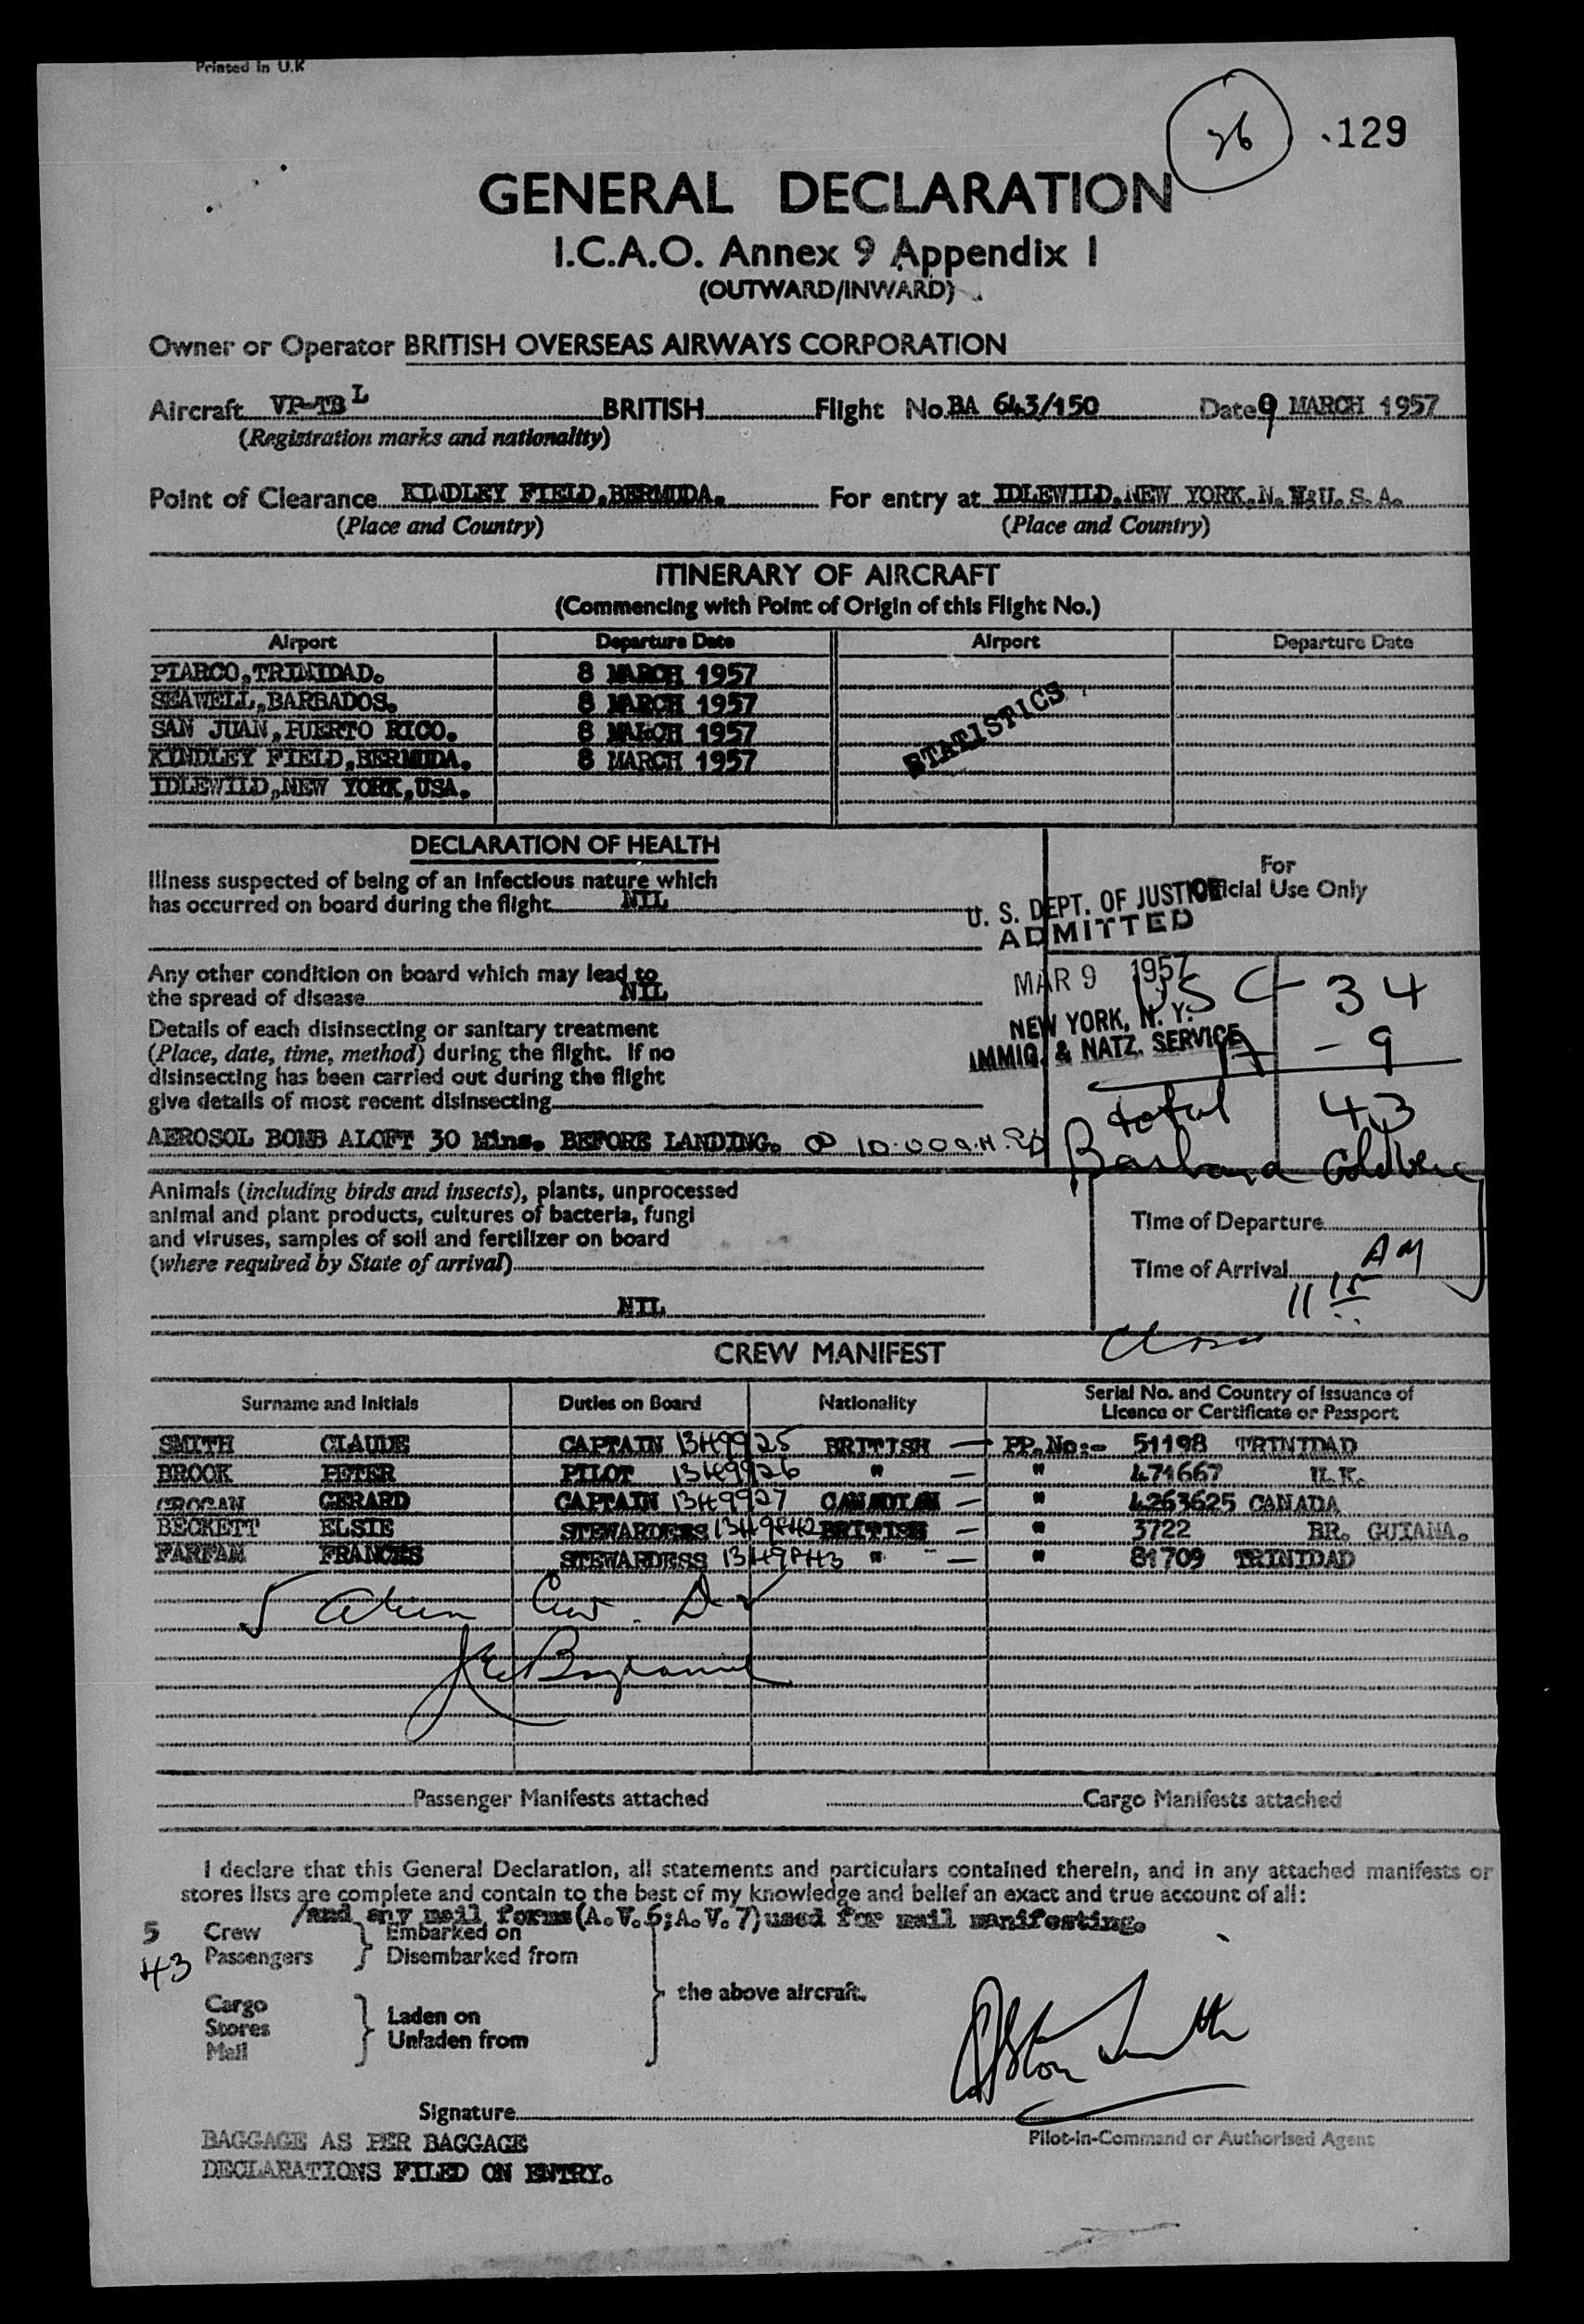 Printed in U.K
129
GENERAL DECLARATION
I.C.A.O. Annex 9 Appendix 1
(OUTWARD/INWARD)
Owner or Operator BRITISH OVERSEAS AIRWAYS CORPORATION
Aircraft VP-TBL BRITISH Flight No. BA 643/150 Date 9 MARCH 1957
(Registration marks and nationality)
Point of Clearance KINDLEY FIELD,BERMUDA. For entry at IDLEWILD,NEW YORK.N.Y.U.S.A.
(Place and Country) (Place and Country)
ITINERARY OF AIRCRAFT
(Commencing with Point of Origin of this Flight No.)
Airport Departure Date Airport Departure Date
PIARCO,TRINIDAD. 8 MARCH 1957
SEAWELL,BARBADOS. 8 MARCH 1957
SAN JUAN,PUERTO RICO. 8 MARCH 1957
KINDLEY FIELD,BERMUDA. 8 MARCH 1957
IDLEWILD,NEW YORK,USA.
STATISTICS
DECLARATION OF HEALTH
Illness suspected of being of an infectious nature which
has occurred on board during the flight NIL
For
Official Use Only
U. S. DEPT. OF JUSTICE
ADMITTED
MAR 9 1957
NEW YORK, N. Y.
IMMIG. & NATZ. SERVICE
Any other condition on board which may lead to
the spread of disease NIL
Details of each disinsecting or sanitary treatment
(Place, date, time, method) during the flight. If no
disinsecting has been carried out during the flight
give details of most recent disinsecting
AEROSOL BOMB ALOFT 30 Mins. BEFORE LANDING. @ 10.00 A.M.
USC 34
A - 9
total 43
Barbara
Animals (including birds and insects), plants, unprocessed
animal and plant products, cultures of bacteria, fungi
and viruses, samples of soil and fertilizer on board
(where required by State of arrival)
NIL
Time of Departure
Time of Arrival 11 15 AM
CREW MANIFEST
Surname and Initials Duties on Board Nationality Serial No. and Country of Issuance of
Licence or Certificate or Passport
SMITH CLAUDE CAPTAIN 13H9925 BRITISH — PP.No:- 51198 TRINIDAD
BROOK PETER PILOT 13H9926 " — " 471667 U.K.
GROGAN GERARD CAPTAIN 13H9927 CANADIAN — " 4263625 CANADA
BECKETT ELSIE STEWARDERS 13H9842 BRITISH — " 3722 BR. GUIANA.
FARFAN FRANCES STEWARDESS 13H9843 " — " 81709 TRINIDAD
Passenger Manifests attached Cargo Manifests attached
I declare that this General Declaration, all statements and particulars contained therein, and in any attached manifests or
stores lists are complete and contain to the best of my knowledge and belief an exact and true account of all:
/and any mail forms(A.V.6;A.V.7)used for mail manifesting.
5 Crew Embarked on
43 Passengers Disembarked from
the above aircraft.
Cargo
Stores
Mail
Laden on
Unladen from
Signature
Pilot-in-Command or Authorised Agent
BAGGAGE AS PER BAGGAGE
DECLARATIONS FILED ON ENTRY.